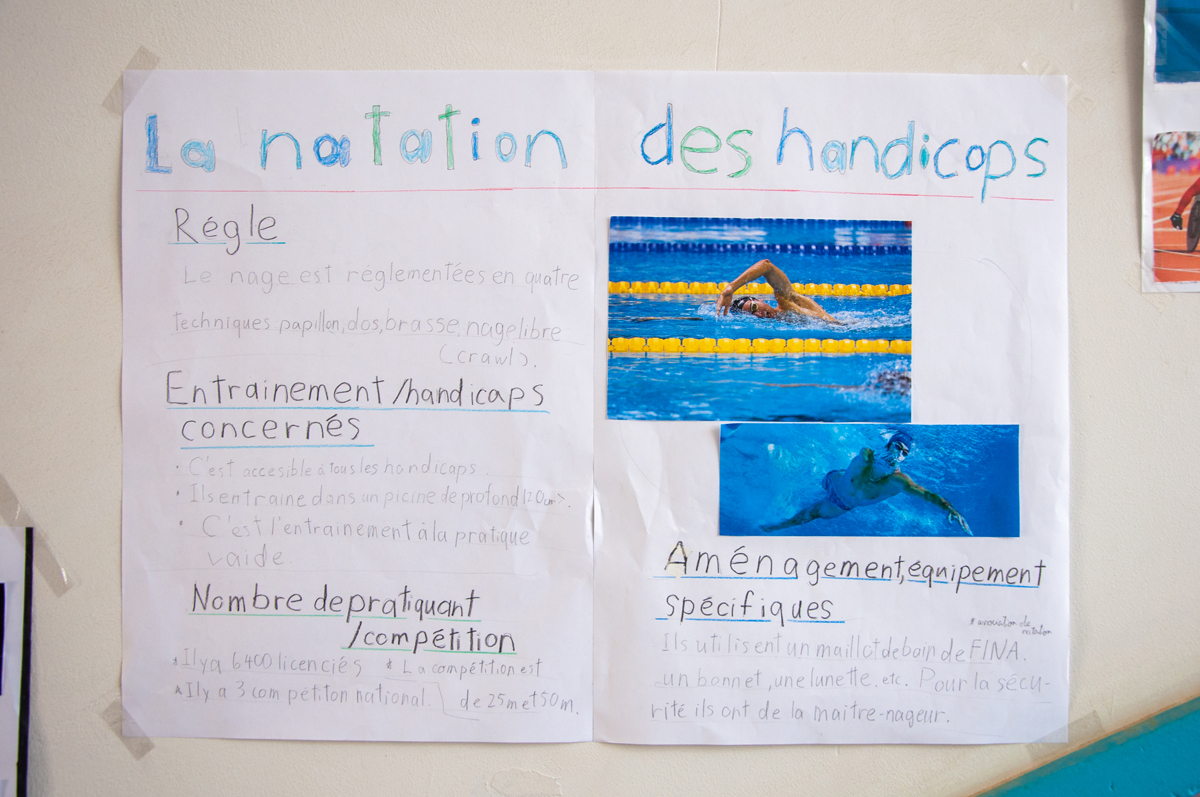 La natation des handicaps
Régle
Le nage est réglementées en quatre
techniques papillon, dos, brasse, nage libre
(crawl).
Entrainement /handicaps
concernés
· C'est accesible à tous les handicaps.
· Ils entraine dans un picine de profond 120cm
· C'est l'entrainement à la pratique
vaide
Nombre de pratiquant
/compétition
* Il y a 6400 licenciés
* Il y a 3 compétiton national.
* La compétition est
de 25m et 50m.
Aménagement, équipement
spécifiques
* de
natation
Ils utilisent un maillot de bain de FINA.
un bonnet, une lunette. etc. Pour la sécu-
rité ils ont de la maitre-nageur.